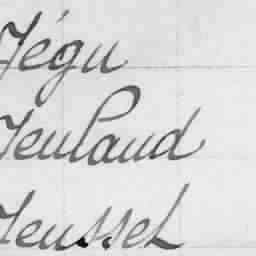 Jégu
Jeuland
Jeussel